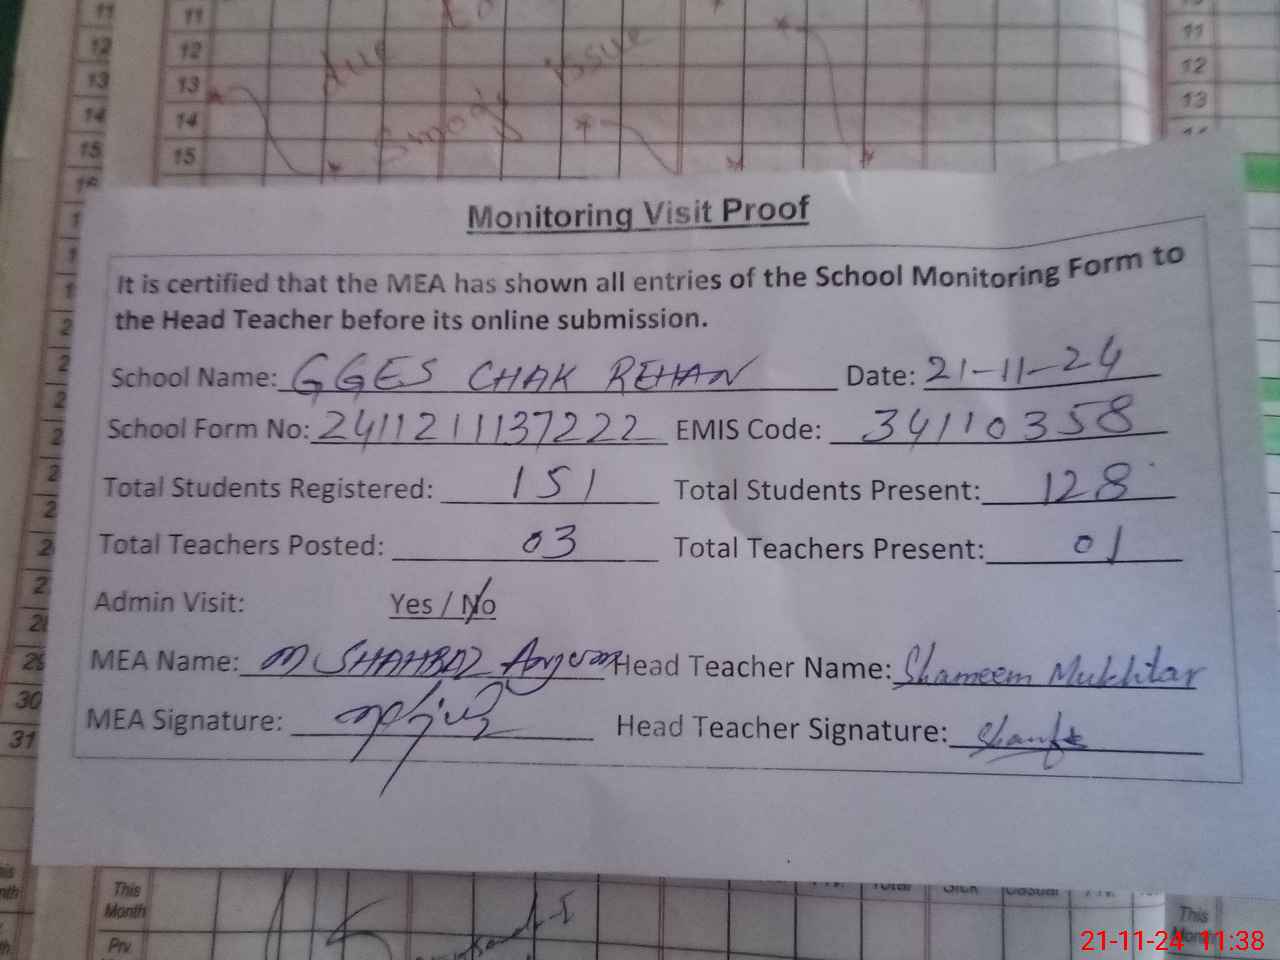 11
11
12
12
13
13
14
14
15
15
16
due
Smog issue
11
12
13
Monitoring Visit Proof
It is certified that the MEA has shown all entries of the School Monitoring Form to
the Head Teacher before its online submission.
School Name: GGES CHAK REHAN Date: 21-11-24
School Form No: 2411211137222 EMIS Code: 34110358
Total Students Registered: 151 Total Students Present: 128
Total Teachers Posted: 03 Total Teachers Present: 01
Admin Visit: Yes / No
MEA Name: M SHAHBAZ Anjum Head Teacher Name: Shameem Mukhtar
MEA Signature: Head Teacher Signature:
29
30
31
This
Month
Prv
Total Sick Casual Prv.
This
Month
21-11-24 11:38